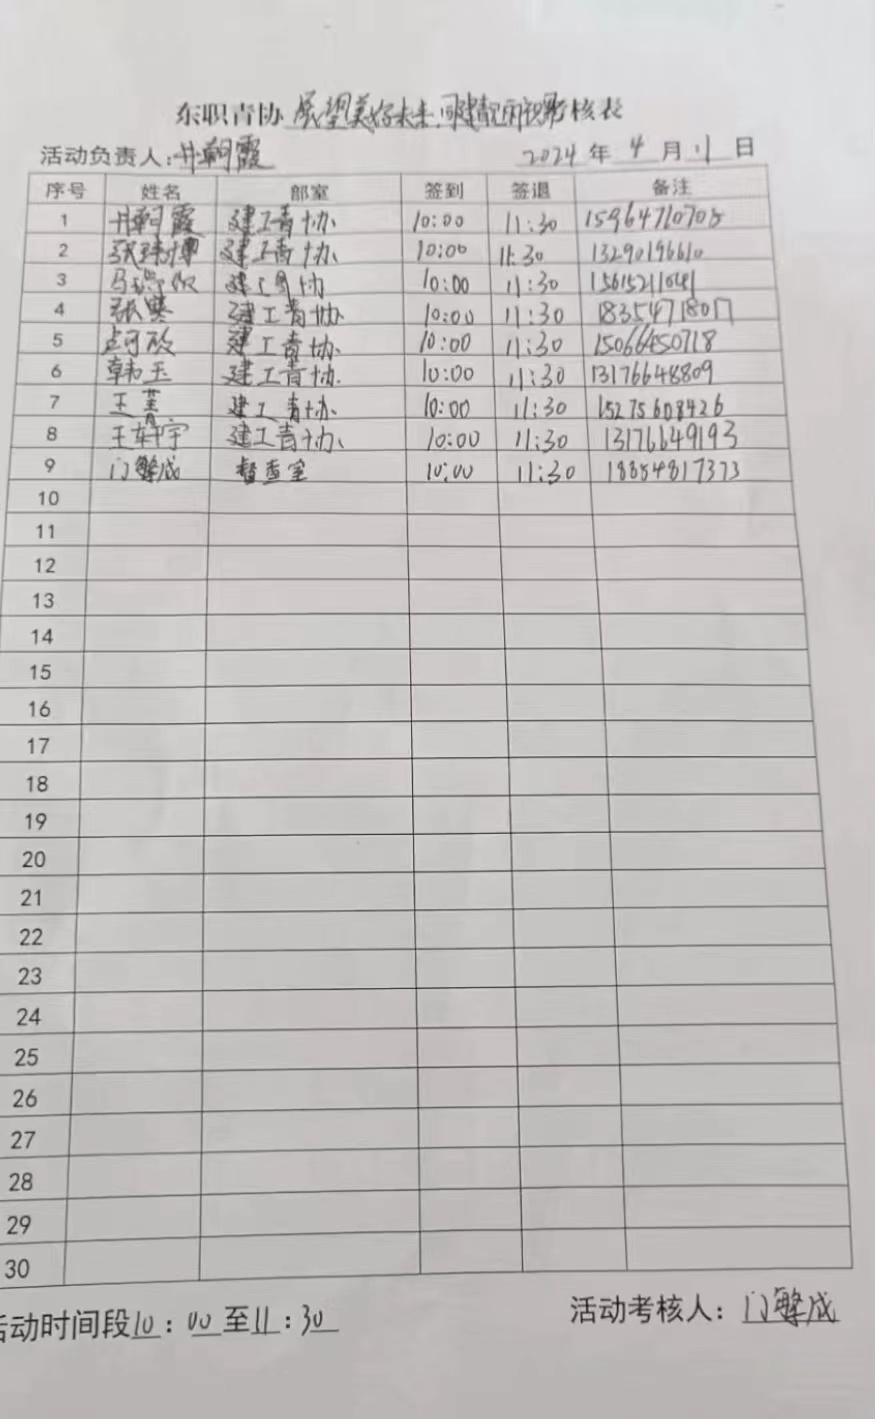 东职青协 展望美好未来,同建靓丽视界 考核表
活动负责人: 井轲霞 2024 年 4 月 11 日
序号 姓名 部室 签到 签退 备注
1 井轲霞 建工青协 10:00 11:30 15964710705
2 张 博 建工青协 10:00 11:30 13290196610
3 马 建工青协 10:00 11:30 15615211041
4 张赛 建工青协 10:00 11:30 18354718017
5 建工青协 10:00 11:30 15066450718
6 韩玉 建工青协 10:00 11:30 13176648809
7 王菁 建工青协 10:00 11:30 15275608426
8 王轩宇 建工青协 10:00 11:30 13176649193
9 门繁成 督查室 10:00 11:30 18854817373
10
11
12
13
14
15
16
17
18
19
20
21
22
23
24
25
26
27
28
29
30
活动时间段10:00至11:30 活动考核人: 门繁成